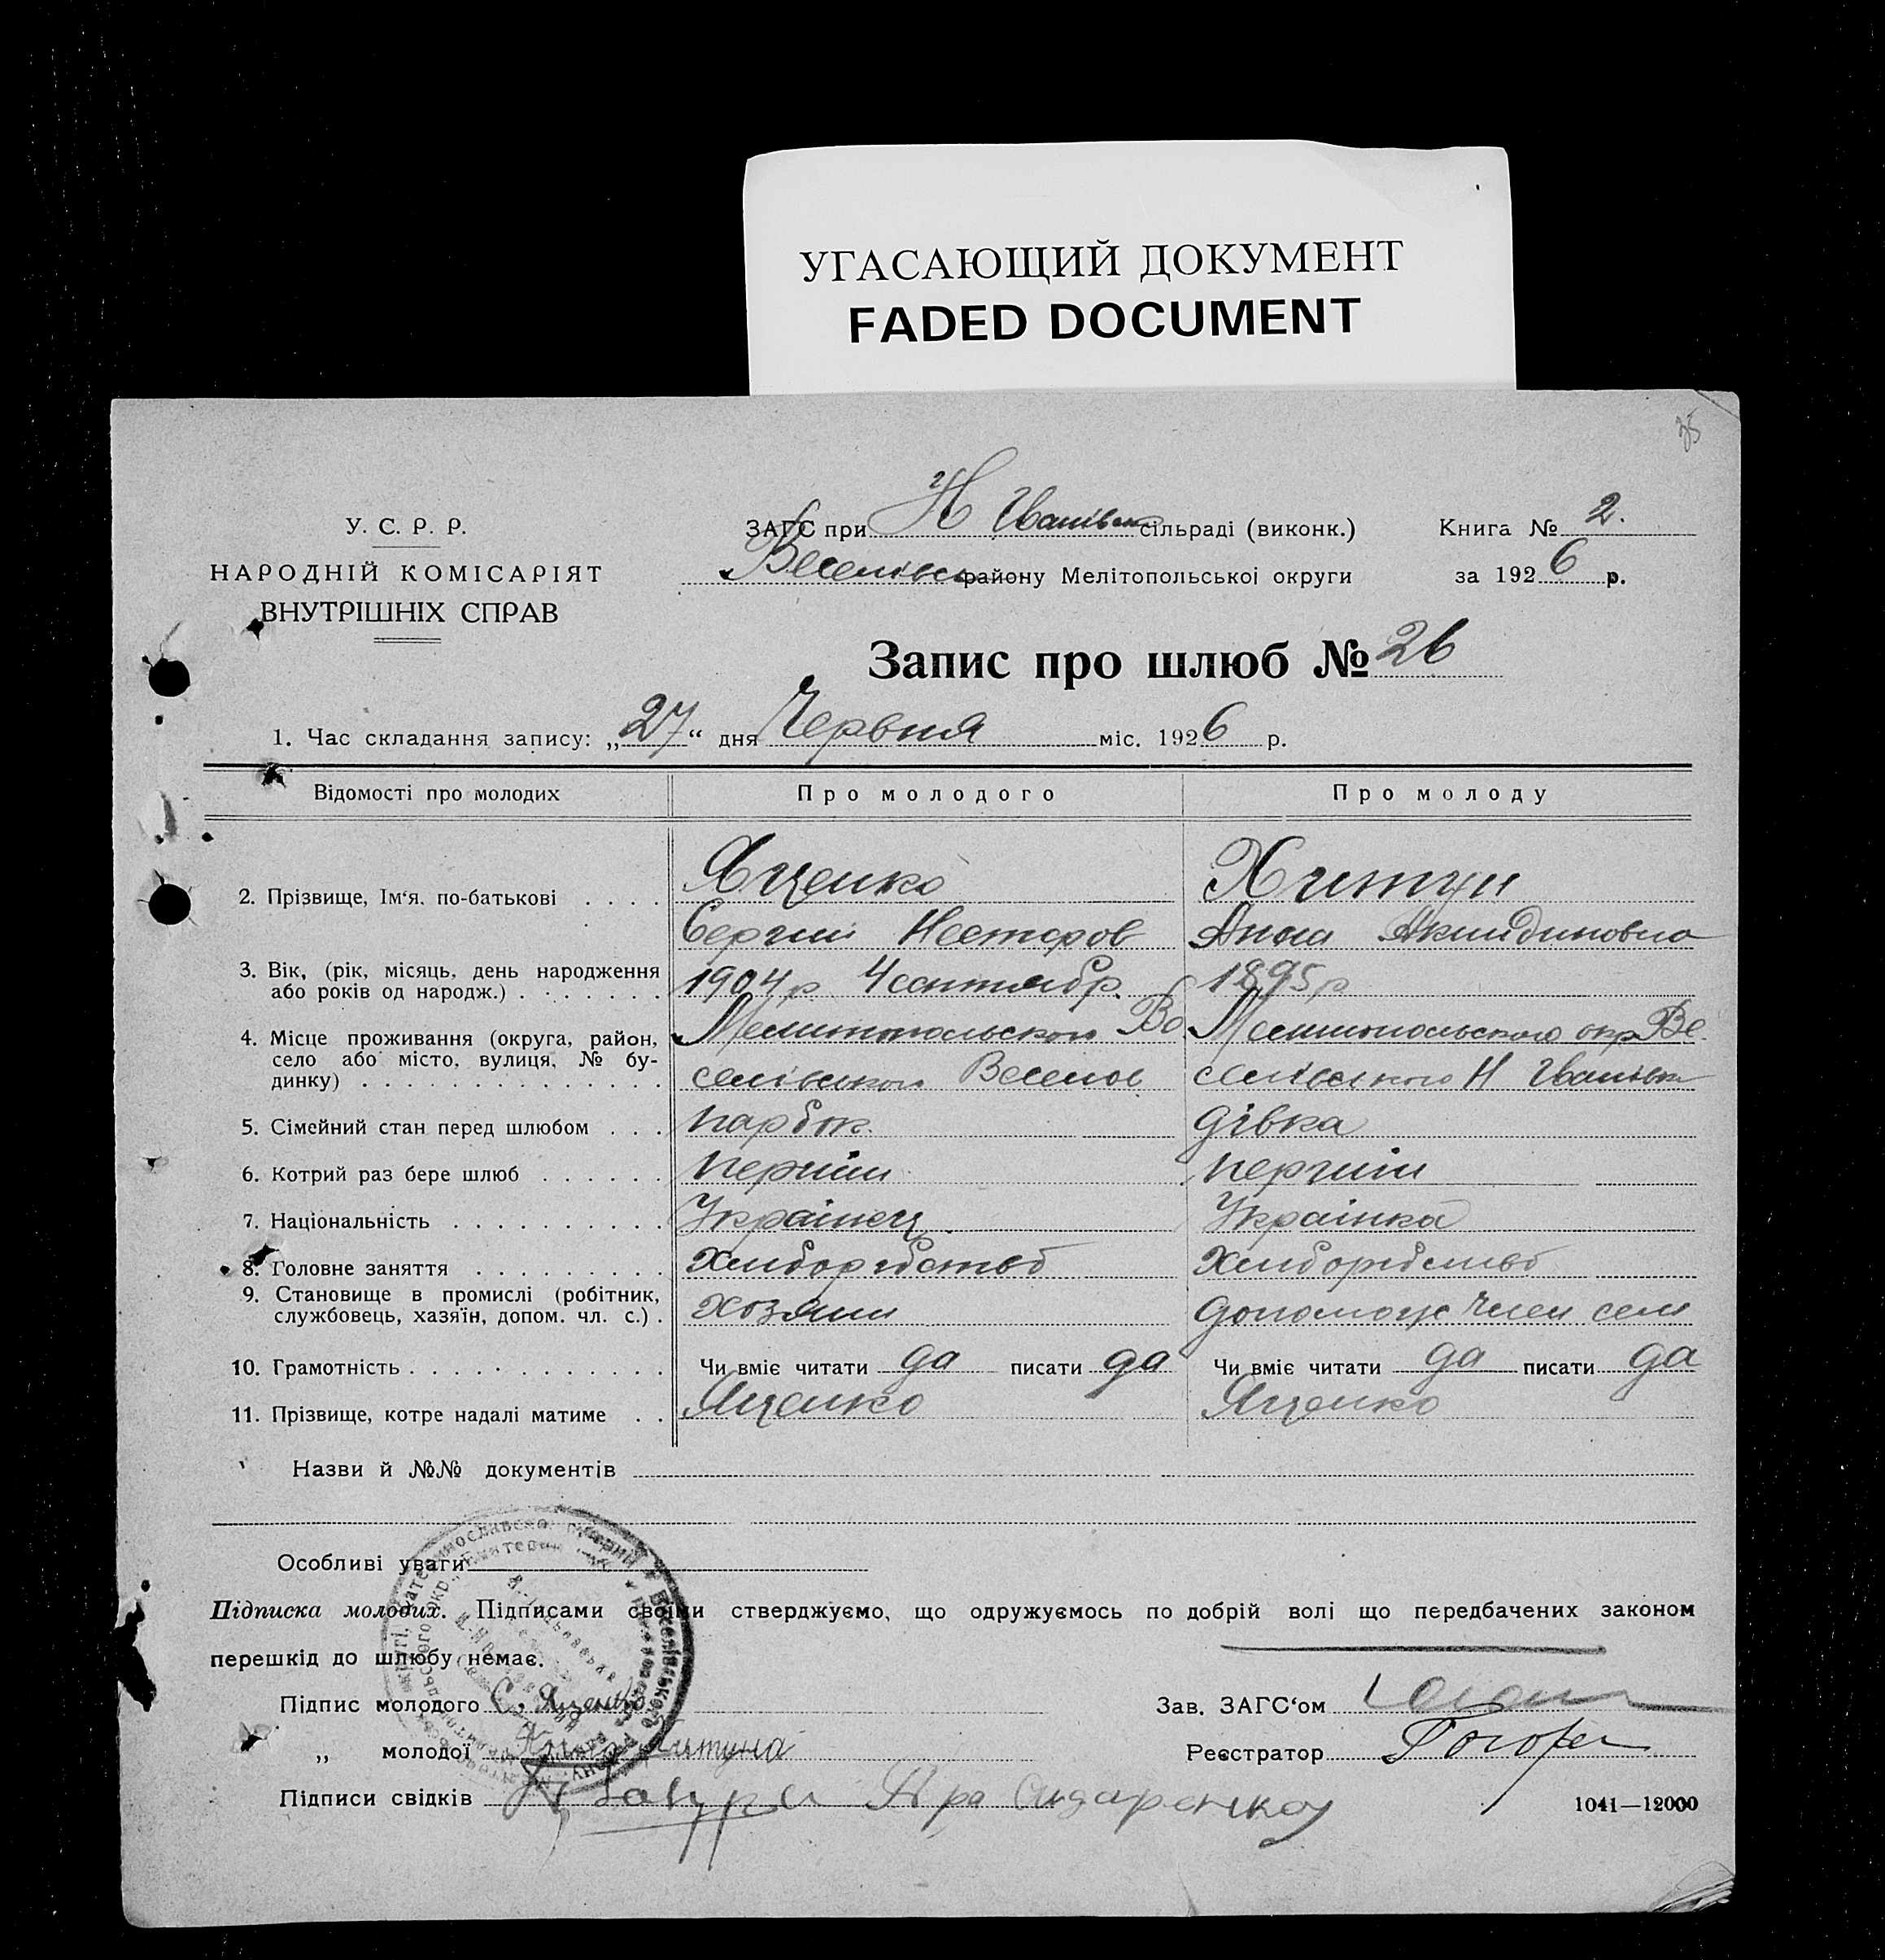 УГАСАЮЩИЙ ДОКУМЕНТ
FADED DOCUMENT
35
У. С. Р. Р.
НАРОДНІЙ КОМІСАРІЯТ
ВНУТРІШНІХ СПРАВ
ЗАГС при Н Іванівск сільраді (виконк.)
Веселівск району Мелітопольської округи
Книга № 2.
за 1926 р.
Запис про шлюб № 26
1. Час складання запису: „27“ дня Червня міс. 1926 р.
Відомості про молодих Про молодого Про молоду
2. Прізвище, Ім‘я. по-батькові . . . . Яценко Хитун
Сергий Нестеров Анна Акиндиновна
3. Вік, (рік, місяць, день народження
або років од народж.) . . . . . . . 1904 р 4 сентябр. 1895 р
4. Місце проживання (округа, район,
село або місто, вулиця, № бу-
динку) . . . . . . . . . . . . . .
Мелитопольского Ве Мелитопольского окр Ве
селівського Веселов селівського Н Іванівка
5. Сімейний стан перед шлюбом . . . парбок. дівка
6. Котрий раз бере шлюб . . . . . . перший перший
7. Національність . . . . . . . . . . Українец Українка
8. Головне заняття . . . . . . . . . Хлиборобство Хлиборобство
9. Становище в промислі (робітник,
службовець, хазяїн, допом. чл. с.) . хозяин допомож член сем
10. Грамотність . . . . . . . . . . . . Чи вміє читати да писати да Чи вміє читати да писати да
11. Прізвище, котре надалі матиме . . Яценко Яценко
Назви й №№ документів
Особливі уваги
Підписка молодих. Підписами своїми стверджуємо, що одружуємось по добрій волі що передбачених законом
перешкід до шлюбу немає.
Підпис молодого С. Яценко
Зав. ЗАГС‘ом
„ молодої Хитуна
Реєстратор
Підписи свідків Сидаренко
1041—12000